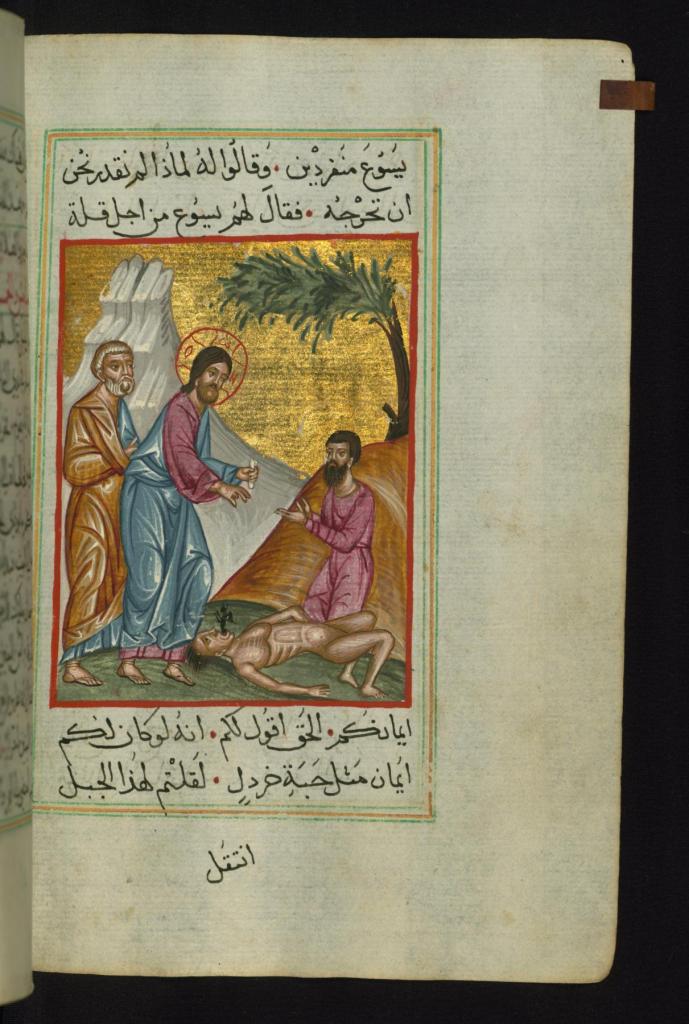 يَسُوْعَ منفردْين • وَقالُوا لهُ لماذا لم نقدر نحْن
ان نخرْجهُ • فقالَ لهُم يسوُع من اجل قلة
ايمانكم • الحقَ اقوُل لكم • انهُ لو كان لكم
ايُمان مَثل حَبةِ خردلٍ • لقلتم لهذا الجبل
انتقل